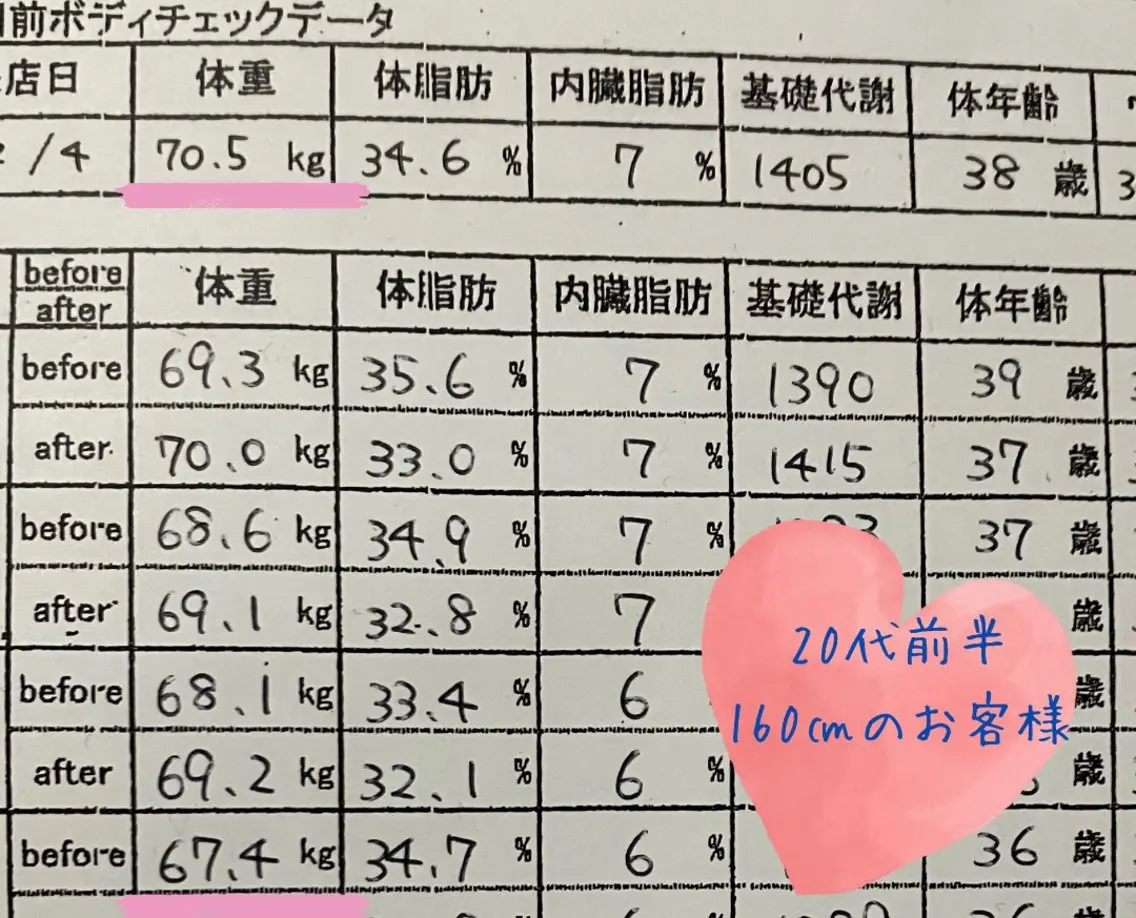 前ボディチェックデータ
店日 体重 体脂肪 内臓脂肪 基礎代謝 体年齢
/4 70.5 kg 34.6 % 7 % 1405 38 歳 3
before
after 体重 体脂肪 内臓脂肪 基礎代謝 体年齢
before 69.3 kg 35.6 % 7 % 1390 39 歳
after 70.0 kg 33.0 % 7 % 1415 37 歳
before 68.6 kg 34.9 % 7 % 37 歳
after 69.1 kg 32.8 % 7 歳
before 68.1 kg 33.4 % 6 歳
after 69.2 kg 32.1 % 6 % 歳
before 67.4 kg 34.7 % 6 % 36 歳
20代前半
160cmのお客様